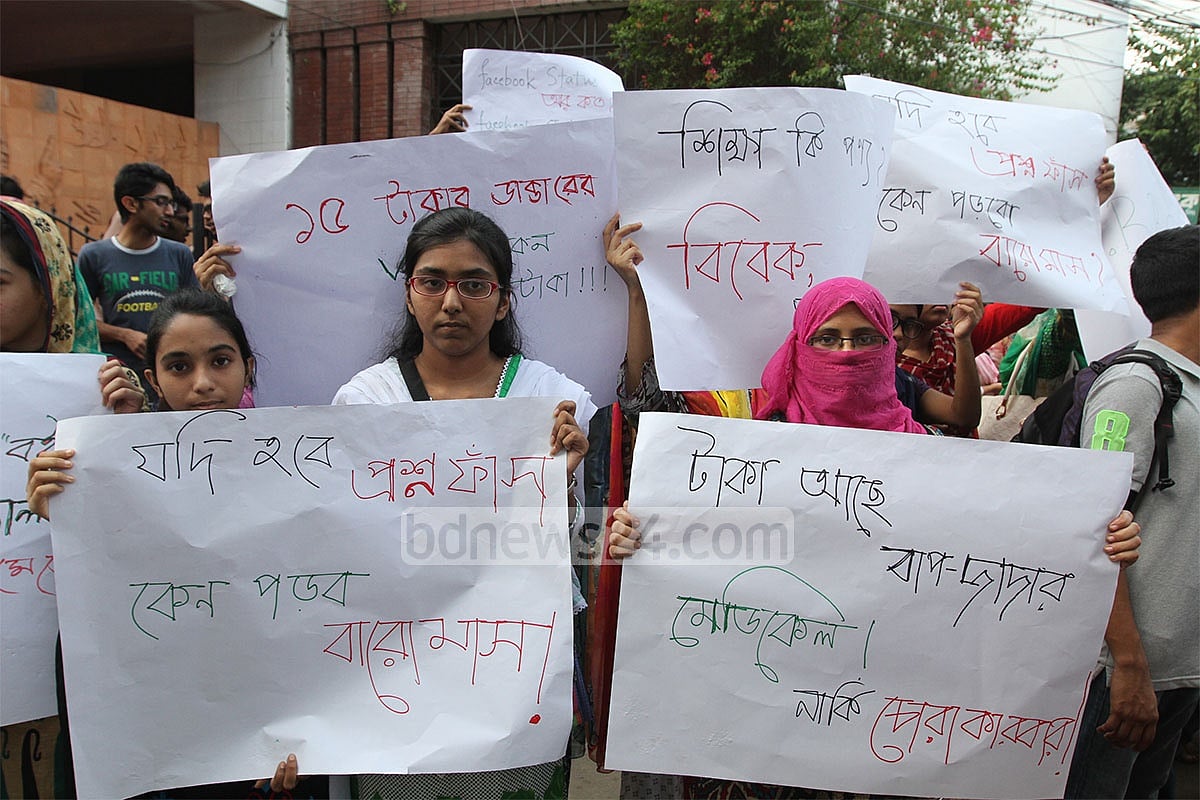 facebook Status
facebook
১৫ টাকার ডাক্তারের
টাকা !!!
শিক্ষা কি পণ্য?
বিবেক,
যদি হবে
প্রশ্ন ফাঁস
কেন পড়বো
বারো মাস?
CAR-FIELD
FOOTBALL
8
যদি হবে প্রশ্ন ফাঁস
কেন পড়ব
বারো মাস!
টাকা আছে
বাপ-দাদার
মেডিকেল।
নাকি চোরাকারবারী
bdnews24.com